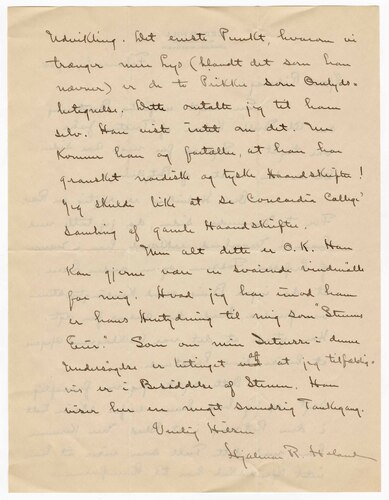 Udvikling. Det eneste Punkt, hvorom vi
trænger mere Lys (blandt det som han
nævner) er de to Prikker som Omlyds-
betegnelse. Dette omtalte jeg til ham
selv. Han vidste intet om det. Nu
kommer han og fortæller, at han har
gransket nordiske og tyske Haandskrifter!
Jeg skulde lik at se Concordia College's
Samling af gamle Haandskrifter.
Men alt dette er O.K. Han
kan gjerne være en svaiende vindmølle
for mig. Hvad jeg har imod ham
er hans Hentydning til mig som "Stenens
Eier." Som om min Interesse i denne
Undersøgelse er betinget af at jeg tilfældig-
vis er i Besiddelse af Stenen. Han
viser her en meget smudsig Tankegang.
Venlig Hilsen
Hjalmar R. Holand